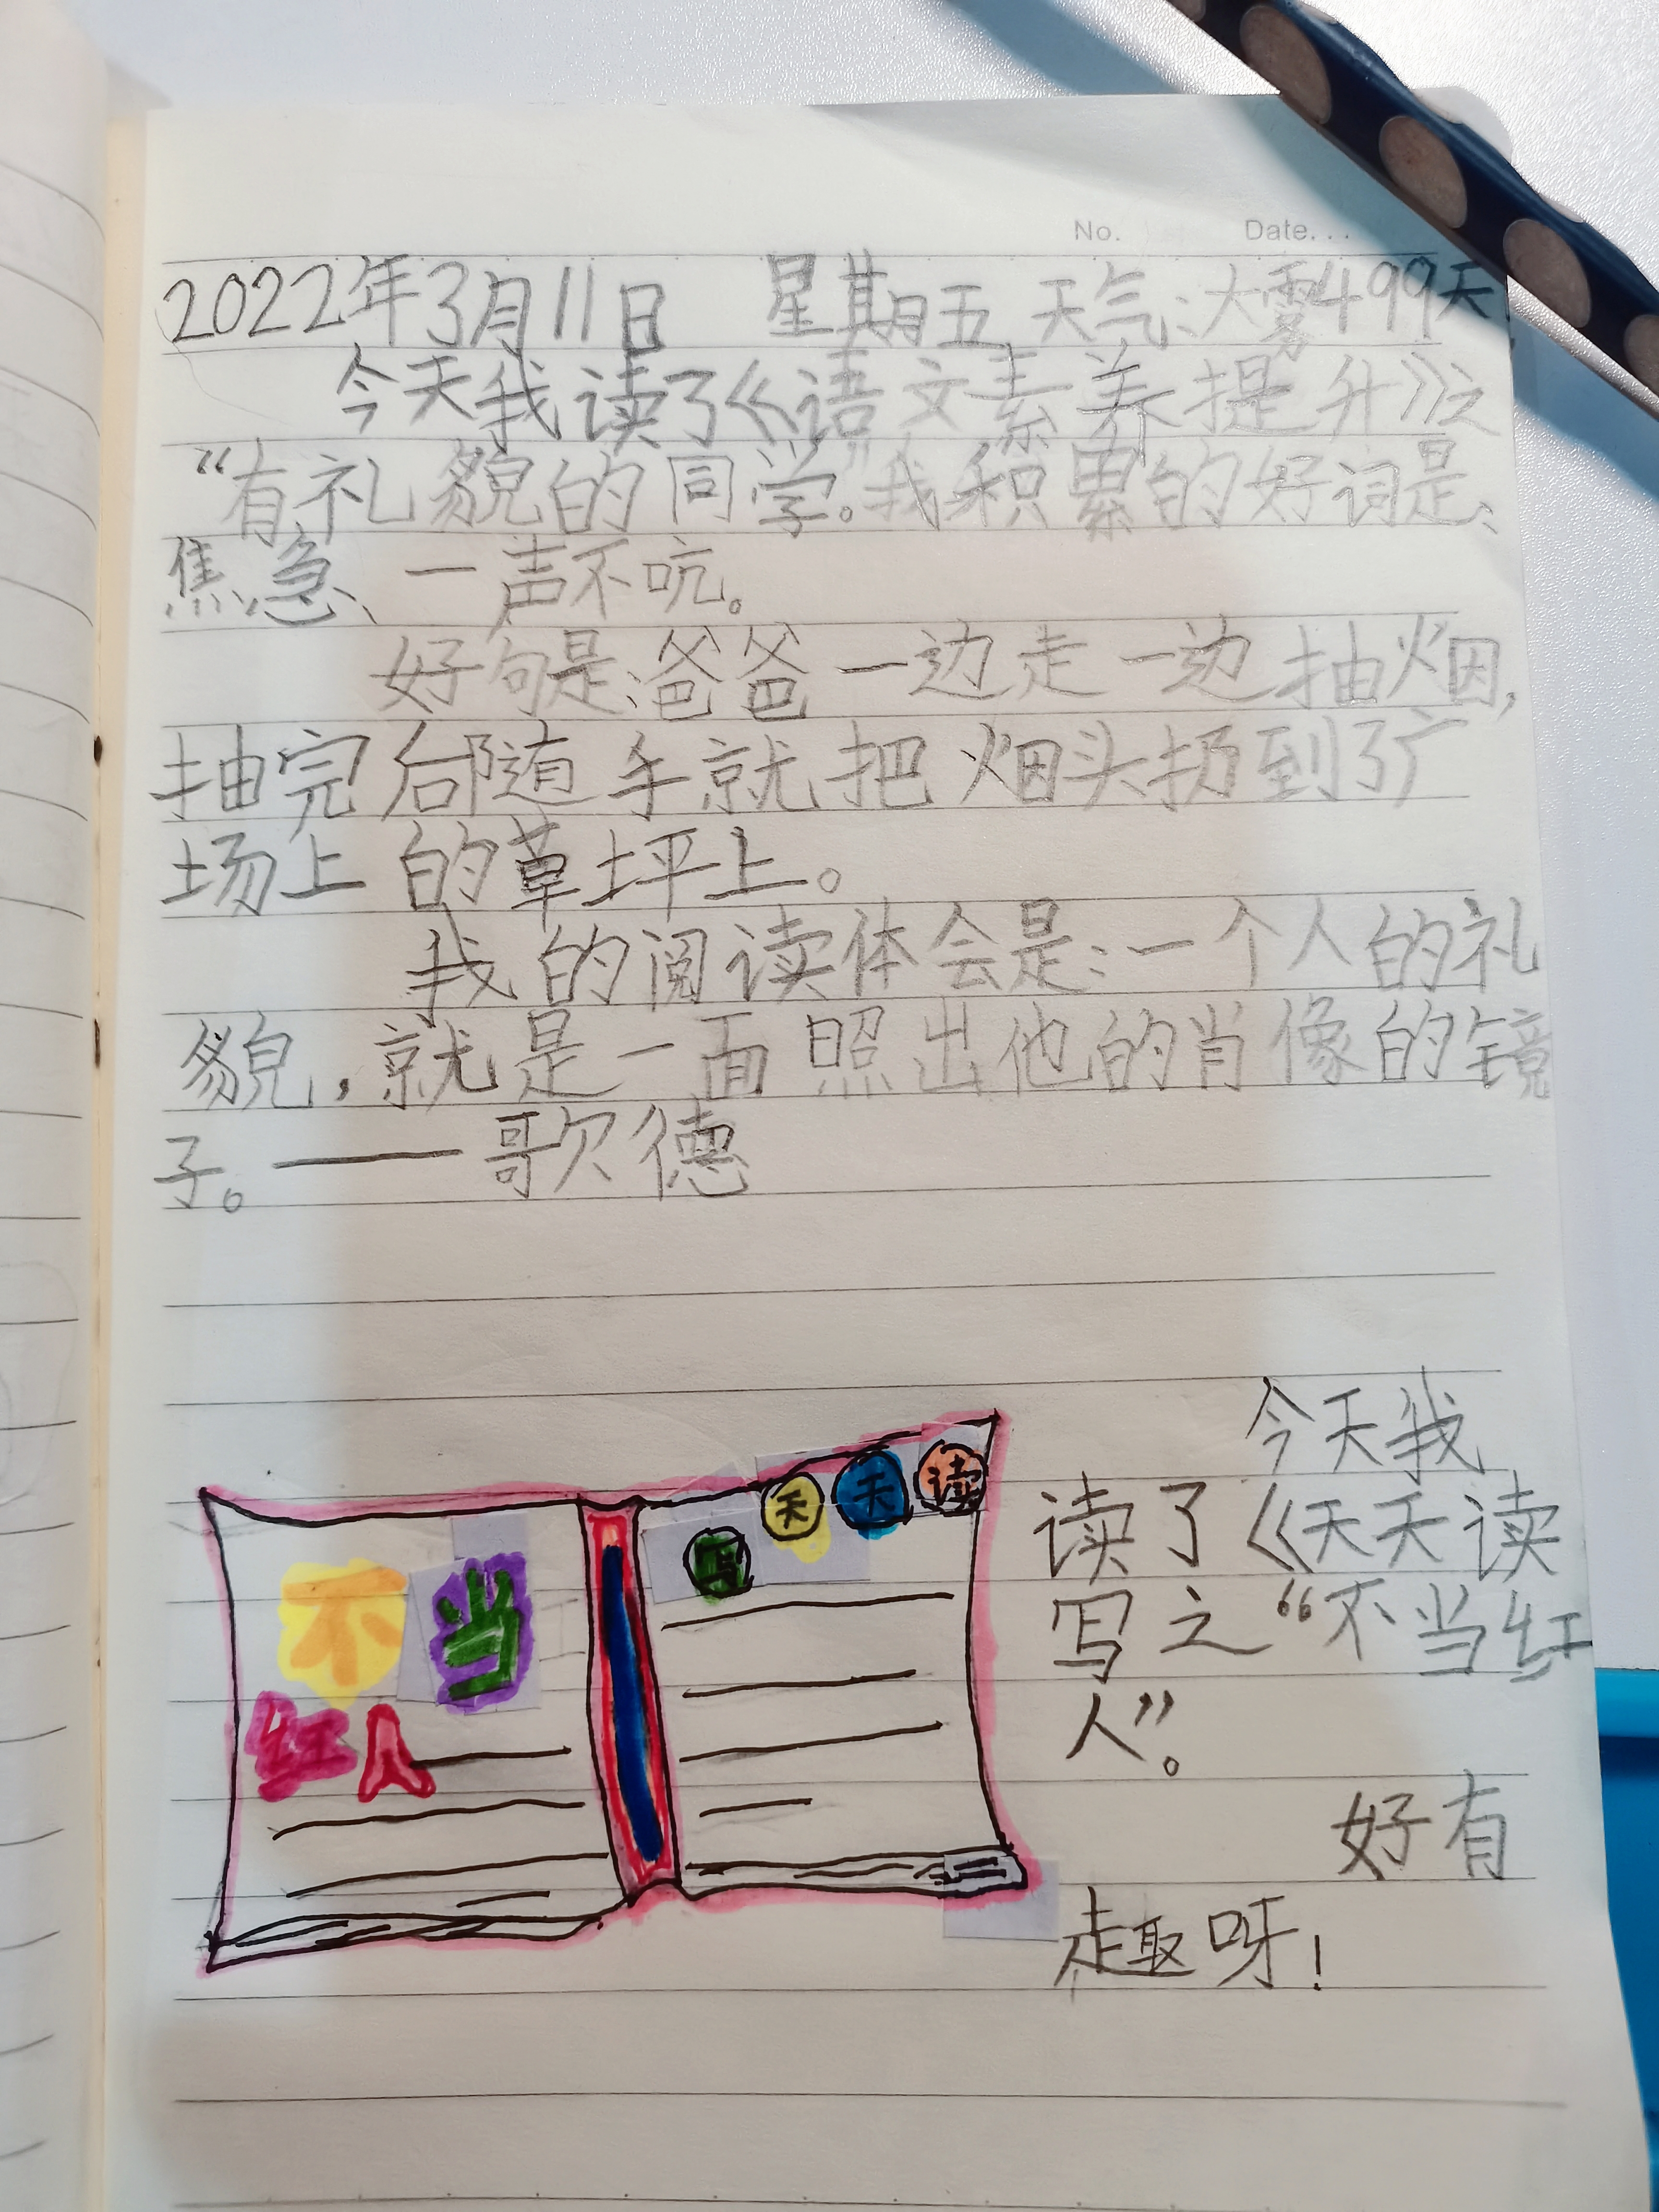 No.
Date...
2022年3月11日 星期五 天气:大雾499天
今天我读了《语文素养提升》之
“有礼貌的同学”。我积累的好词是、
焦急、一声不吭。
好句是:爸爸一边走一边抽烟,
抽完后随手就把烟头扔到了广
场上的草坪上。
我的阅读体会是:一个人的礼
貌,就是一面照出他的肖像的镜
子。——歌德
不当
红人
写天天读
今天我
读了《天天读
写之“不当红
人”。
好有
趣呀!